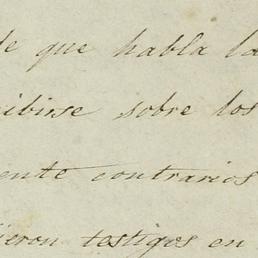 de que habla la
cibirse sobre los
ente contrarios
ieron testigos en